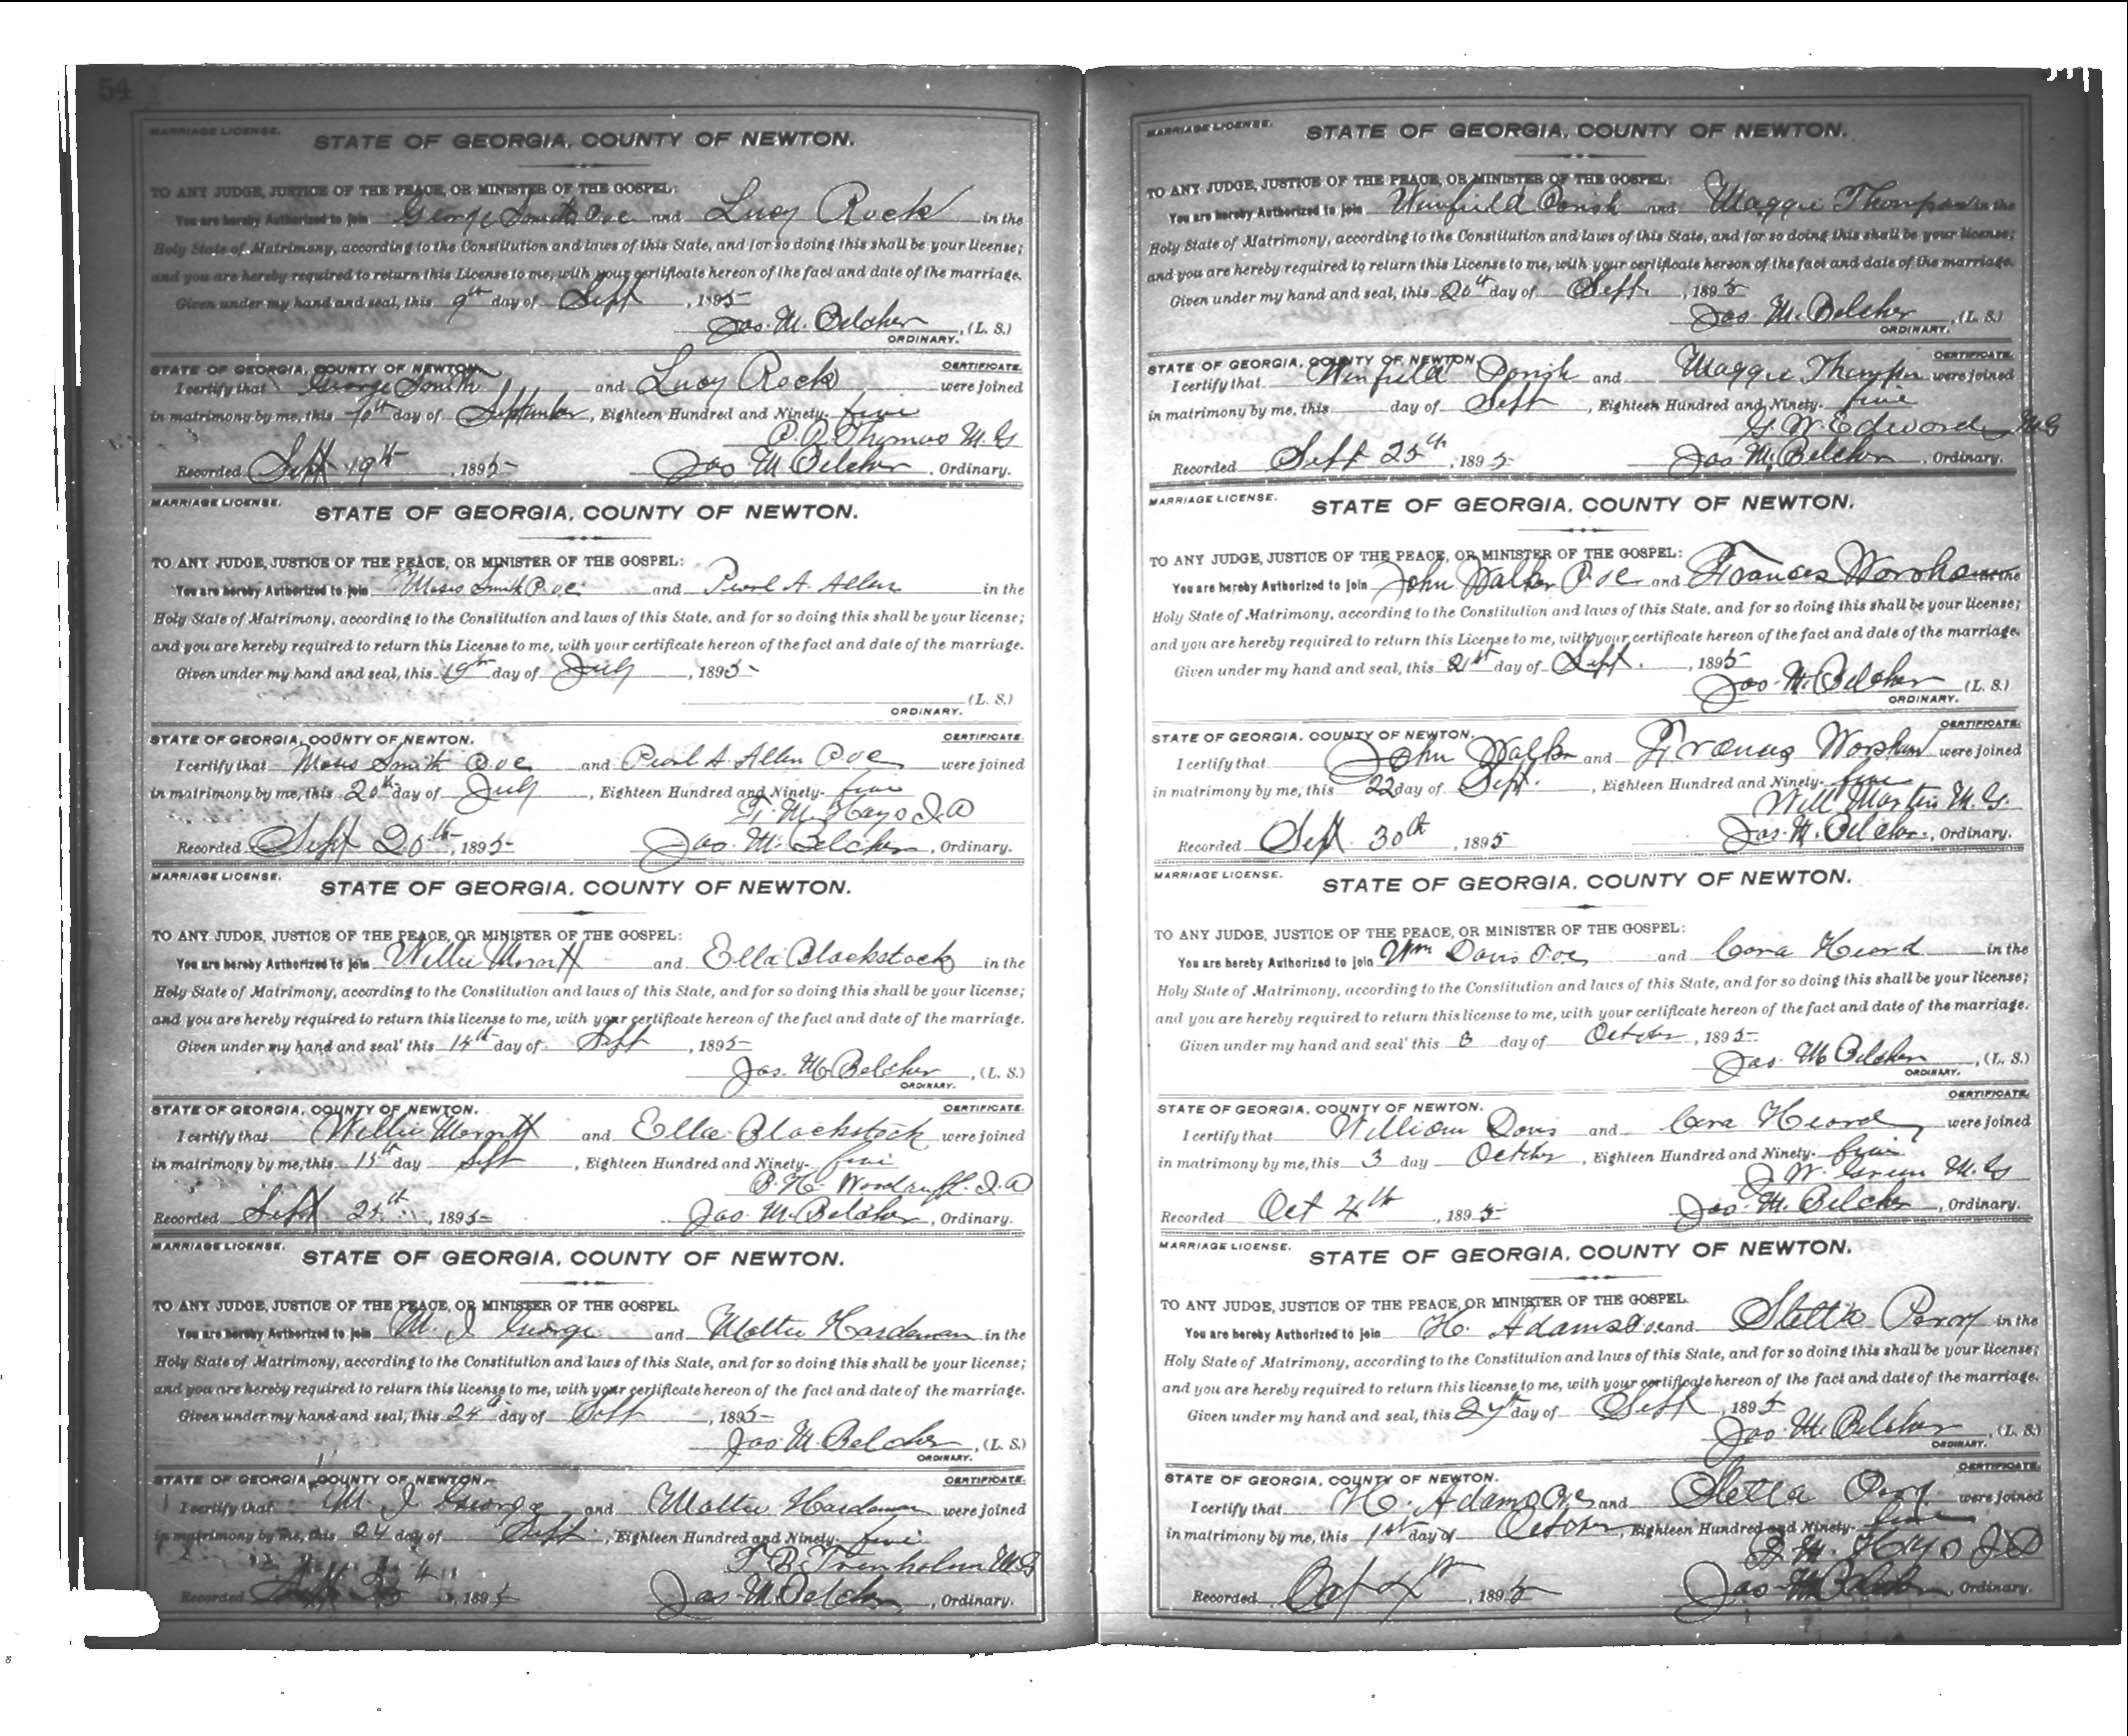 54
MARRIAGE LICENSE.
STATE OF GEORGIA, COUNTY OF NEWTON.
TO ANY JUDGE, JUSTICE OF THE PEACE, OR MINISTER OF THE GOSPEL:
You are hereby Authorized to join George Smith Poc and Lucy Rock in the
Holy State of Matrimony, according to the Constitution and laws of this State, and for so doing this shall be your license;
and you are hereby required to return this License to me, with your certificate hereon of the fact and date of the marriage.
Given under my hand and seal, this 9th day of Sept, 1895
Jas. M. Belcher, (L. S.)
ORDINARY.
STATE OF GEORGIA, COUNTY OF NEWTON. CERTIFICATE.
I certify that George Smith and Lucy Rock were joined
in matrimony by me, this 10th day of September, Eighteen Hundred and Ninety-five
Thomas M. G
Recorded Sept 19th, 1895 Jas M Belcher, Ordinary.
MARRIAGE LICENSE.
STATE OF GEORGIA, COUNTY OF NEWTON.
TO ANY JUDGE, JUSTICE OF THE PEACE, OR MINISTER OF THE GOSPEL:
You are hereby Authorized to join Moses Smith P.o.c. and Pearl A. Allen in the
Holy State of Matrimony, according to the Constitution and laws of this State, and for so doing this shall be your license;
and you are hereby required to return this License to me, with your certificate hereon of the fact and date of the marriage.
Given under my hand and seal, this 19th day of July, 1895
(L. S.)
ORDINARY.
STATE OF GEORGIA, COUNTY OF NEWTON. CERTIFICATE.
I certify that Moses Smith Poc and Pearl A. Allen Poc were joined
in matrimony by me, this 20th day of July, Eighteen Hundred and Ninety-five
F. M. Hayo J. P
Recorded Sept 20th, 1895 Jas. M. Belcher, Ordinary.
MARRIAGE LICENSE.
STATE OF GEORGIA, COUNTY OF NEWTON.
TO ANY JUDGE, JUSTICE OF THE PEACE, OR MINISTER OF THE GOSPEL:
You are hereby Authorized to join Willie and Ella Blackstock in the
Holy State of Matrimony, according to the Constitution and laws of this State, and for so doing this shall be your license;
and you are hereby required to return this license to me, with your certificate hereon of the fact and date of the marriage.
Given under my hand and seal this 14th day of Sept, 1895
Jas. M. Belcher, (L. S.)
ORDINARY.
STATE OF GEORGIA, COUNTY OF NEWTON. CERTIFICATE.
I certify that Willie and Ella Blackstock were joined
in matrimony by me, this 15th day Sept, Eighteen Hundred and Ninety-five
Woodruff. J. P
Recorded Sept 25th, 1895 Jas M. Belcher, Ordinary.
MARRIAGE LICENSE.
STATE OF GEORGIA, COUNTY OF NEWTON.
TO ANY JUDGE, JUSTICE OF THE PEACE, OR MINISTER OF THE GOSPEL.
You are hereby Authorized to join M. J. George and Mattie Hardeman in the
Holy State of Matrimony, according to the Constitution and laws of this State, and for so doing this shall be your license;
and you are hereby required to return this license to me, with your certificate hereon of the fact and date of the marriage.
Given under my hand and seal, this 24th day of Sept, 1895
Jas. M. Belcher, (L. S.)
ORDINARY.
STATE OF GEORGIA, COUNTY OF NEWTON. CERTIFICATE.
I certify that M. J George and Mattie Hardeman were joined
in matrimony by me, this 24 day of Sept., Eighteen Hundred and Ninety-five
T. B. Trenholm M G
Recorded Sept, 1895 Jas M. Belcher, Ordinary.
MARRIAGE LICENSE.
STATE OF GEORGIA, COUNTY OF NEWTON.
TO ANY JUDGE, JUSTICE OF THE PEACE, OR MINISTER OF THE GOSPEL:
You are hereby Authorized to join Winfield and Maggie Thompson in the
Holy State of Matrimony, according to the Constitution and laws of this State, and for so doing this shall be your license;
and you are hereby required to return this License to me, with your certificate hereon of the fact and date of the marriage.
Given under my hand and seal, this 20th day of Sept., 1895
Jas M. Belcher, (L. S.)
ORDINARY.
STATE OF GEORGIA, COUNTY OF NEWTON. CERTIFICATE.
I certify that Winfield and Maggie were joined
in matrimony by me, this day of Sept, Eighteen Hundred and Ninety-five
W. Edwards M G
Recorded Sept 25th, 1895 Jas M. Belcher, Ordinary.
MARRIAGE LICENSE.
STATE OF GEORGIA, COUNTY OF NEWTON.
TO ANY JUDGE, JUSTICE OF THE PEACE, OR MINISTER OF THE GOSPEL:
You are hereby Authorized to join John Walker Poc and Frances Worsham in the
Holy State of Matrimony, according to the Constitution and laws of this State, and for so doing this shall be your license;
and you are hereby required to return this License to me, with your certificate hereon of the fact and date of the marriage.
Given under my hand and seal, this 21st day of Sept., 1895
Jas. M. Belcher (L. S.)
ORDINARY.
STATE OF GEORGIA, COUNTY OF NEWTON. CERTIFICATE.
I certify that John Walker and Frances Worsham were joined
in matrimony by me, this 22 day of Sept., Eighteen Hundred and Ninety-five
Will Martin M. G.
Recorded Sept. 30th, 1895 Jas. M. Belcher, Ordinary.
MARRIAGE LICENSE.
STATE OF GEORGIA, COUNTY OF NEWTON.
TO ANY JUDGE, JUSTICE OF THE PEACE, OR MINISTER OF THE GOSPEL:
You are hereby Authorized to join Wm Davis Poc and Cora Heard in the
Holy State of Matrimony, according to the Constitution and laws of this State, and for so doing this shall be your license;
and you are hereby required to return this license to me, with your certificate hereon of the fact and date of the marriage.
Given under my hand and seal this 3 day of October, 1895
Jas M Belcher, (L. S.)
ORDINARY.
STATE OF GEORGIA, COUNTY OF NEWTON. CERTIFICATE.
I certify that William Davis and Cora Heard were joined
in matrimony by me, this 3 day October, Eighteen Hundred and Ninety-five
J W. Green M. G
Recorded Oct 4th, 1895 Jas. M. Belcher, Ordinary.
MARRIAGE LICENSE.
STATE OF GEORGIA, COUNTY OF NEWTON.
TO ANY JUDGE, JUSTICE OF THE PEACE, OR MINISTER OF THE GOSPEL.
You are hereby Authorized to join H. Adams Poc and Stella Perry in the
Holy State of Matrimony, according to the Constitution and laws of this State, and for so doing this shall be your license;
and you are hereby required to return this license to me, with your certificate hereon of the fact and date of the marriage.
Given under my hand and seal, this 27th day of Sept, 1895
Jas. M. Belcher, (L. S.)
ORDINARY.
STATE OF GEORGIA, COUNTY OF NEWTON. CERTIFICATE.
I certify that H. Adams Poc and Stella Perry were joined
in matrimony by me, this 1st day of October, Eighteen Hundred and Ninety-five
F. M. Hayo J P
Recorded Oct 4th, 1895 Jas M Belcher, Ordinary.